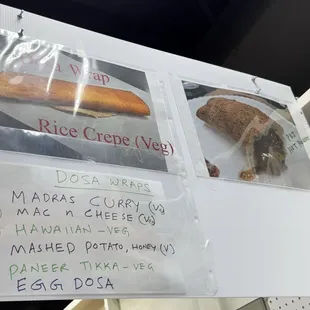 Wrap
Rice Crepe (Veg)
DOSA WRAPS
MADRAS CURRY (VG)
MAC n CHEESE (VG)
HAWAIIAN - VEG
MASHED POTATO, HONEY (V)
PANEER TIKKA - VEG
EGG DOSA